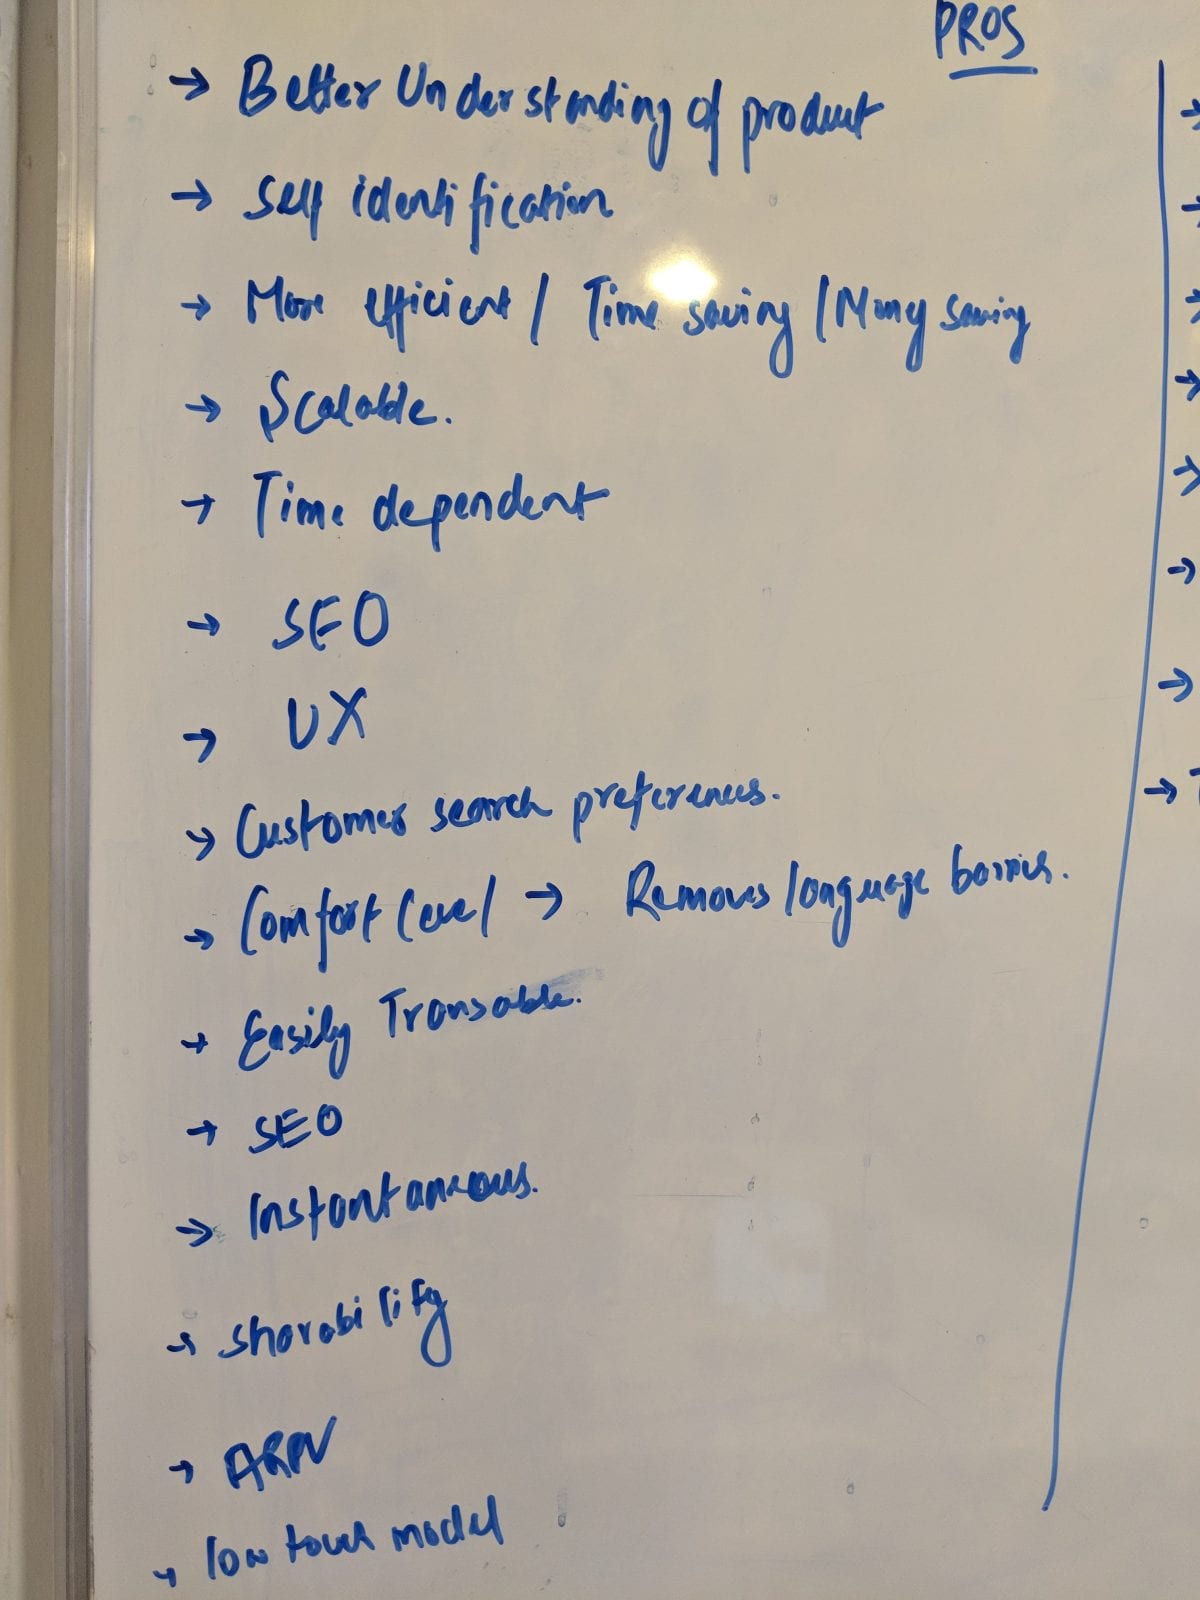 PROS
→ Better Understanding of product
→ Self identification
→ More efficient / Time saving / Money saving
→ Scalable.
→ Time dependent
→ SEO
→ UX
→ Customer search preferences.
→ Comfort level → Removes language barrier.
→ Easily Transable.
→ SEO
→ Instantaneous.
→ Sharability
→ ARPU
→ low touch model